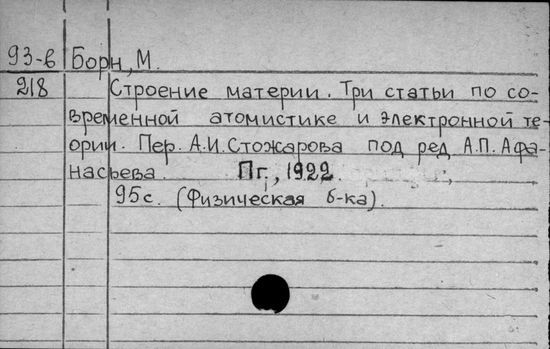 93-в Борн, М.
218 Строение материи. Три статьи по со-
временной атомистике и электронной те-
ории. Пер. А.И. Стожарова под ред А.П. Афа-
насьева. Пг, 1922.
95 с. (Физическая б-ка).